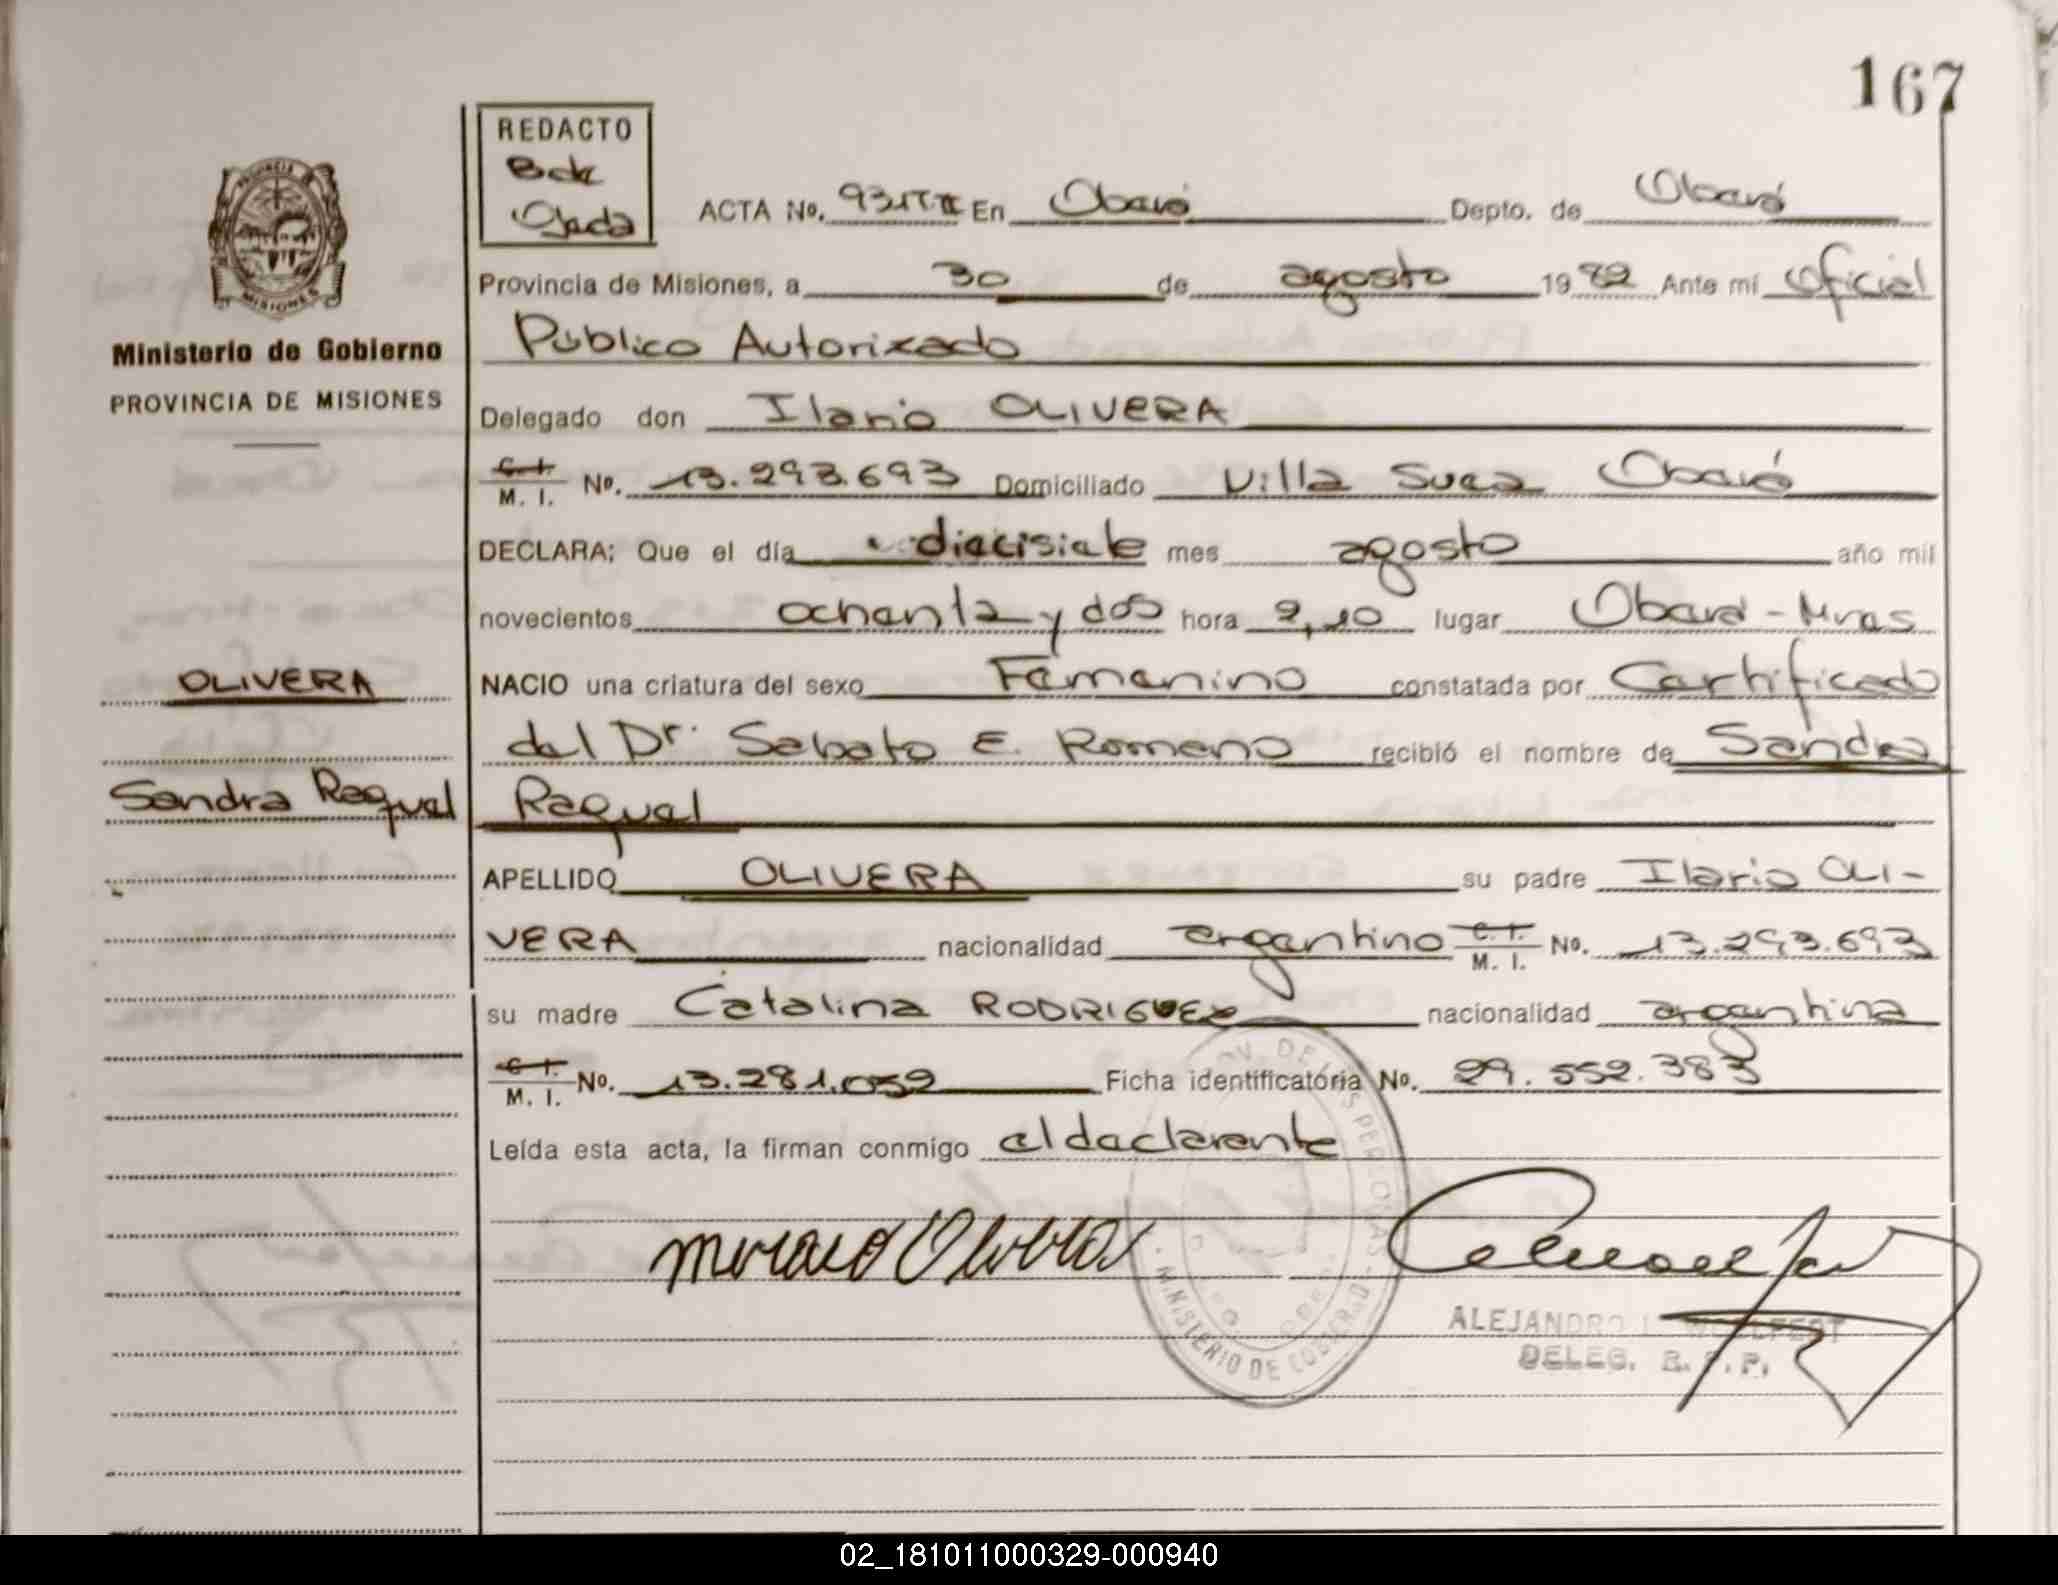 167
REDACTO
Ojeda
ACTA No. 93 En Oberá Depto. de Oberá
Provincia de Misiones, a 30 de agosto 1982 Ante mí Oficial
Público Autorizado
PROVINCIA MISIONES
Ministerio de Gobierno
PROVINCIA DE MISIONES
Delegado don Ilario OLIVERA
C. I. M. I. No. 13.293.693 Domiciliado Villa Svea Oberá
DECLARA: Que el día diecisiete mes agosto año mil
novecientos ochenta y dos hora 2,10 lugar Oberá - Mnes
OLIVERA
NACIO una criatura del sexo Femenino constatada por Certificado
del Dr. Sabato E. Romano recibió el nombre de Sandra
Sandra Raquel
Raquel
APELLIDO OLIVERA su padre Ilario OLI-
VERA nacionalidad argentino C. I. M. I. No. 13.293.693
su madre Catalina RODRIGUEZ nacionalidad argentina
C. I. M. I. No. 13.281.052 Ficha identificatória No. 29.552.383
Leída esta acta, la firman conmigo el declarante
DE LAS PERSONAS
MINISTERIO DE GOBIERNO
ALEJANDRO
DELEG. R. P. P.
02_181011000329-000940